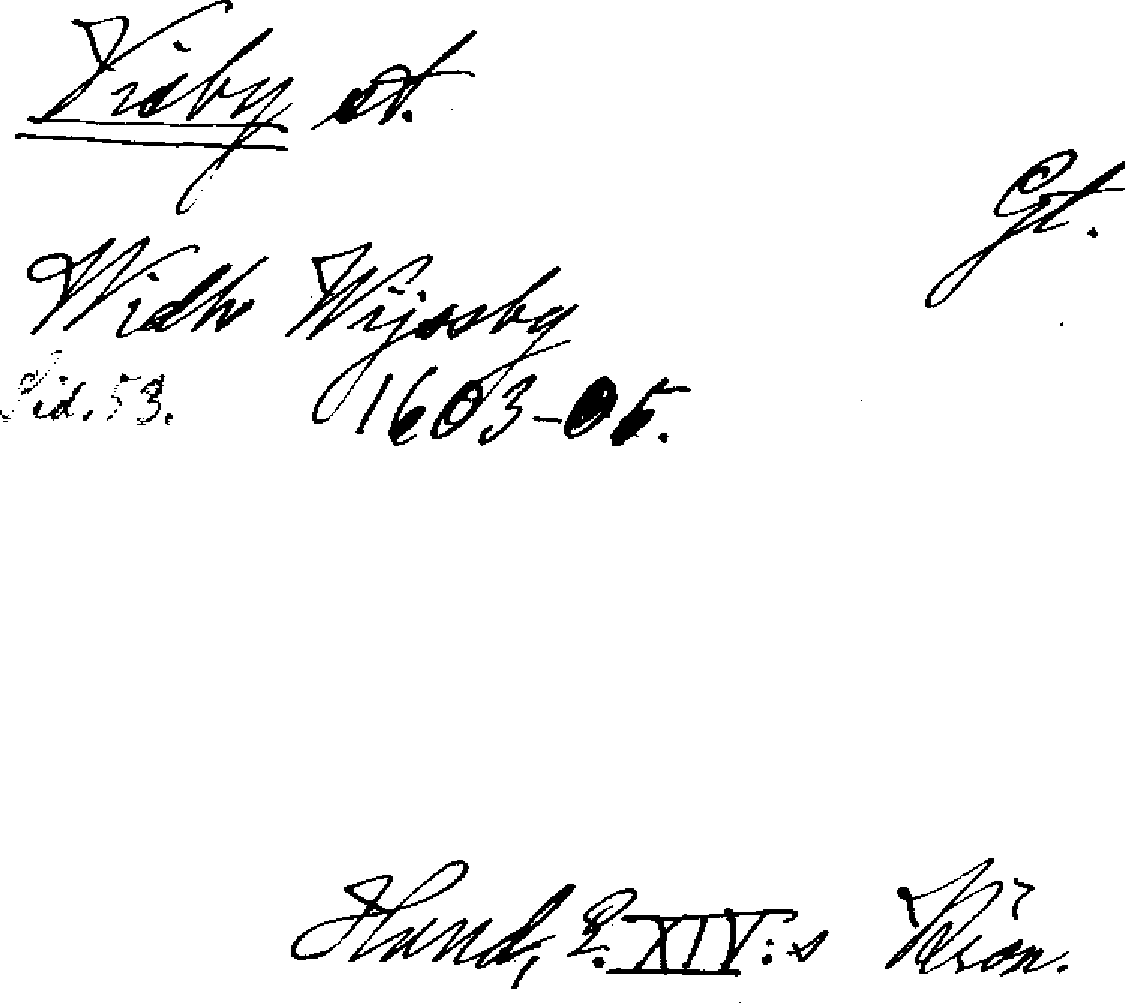 Visby st.
Gt.
Widh Wijssby
Sid. 53. 1603-05.
Hund, E.XIV:s Krön.